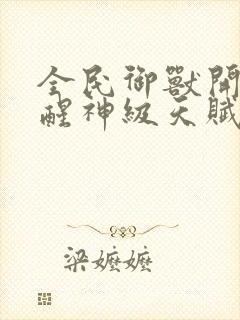 全民御獸開
醒神級天賦
梁嬤嬤